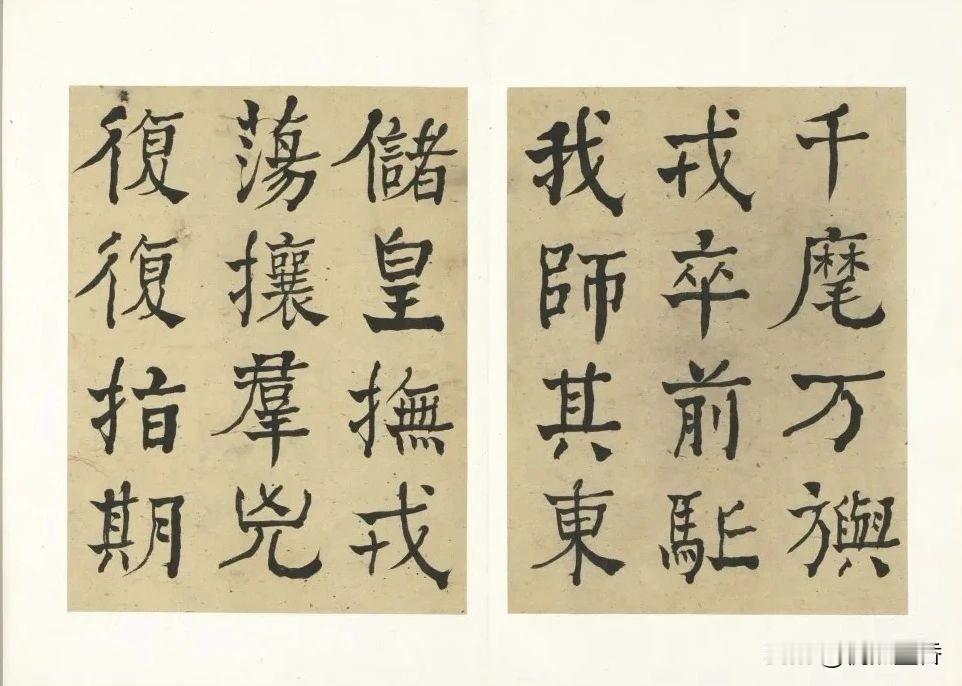 千麾万旟
戎卒前駈
我師其東
儲皇撫戎
蕩攘羣兇
復復指期